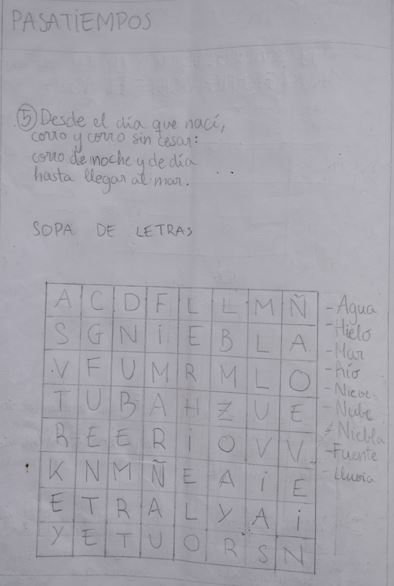 PASATIEMPOS
⑤ Desde el día que nací,
corro y corro sin cesar:
corro de noche y de día
hasta llegar al mar.
SOPA DE LETRAS
A C D F L L M Ñ
S G N I E B L A
V F U M R M L O
T U B A H Z U E
R E E R I O V V
K N M Ñ E A I E
E T R A L Y A I
Y E T U O R S N
- Agua
- Hielo
- Mar
- Río
- Nieve
- Nube
- Niebla
- Fuente
- Lluvia